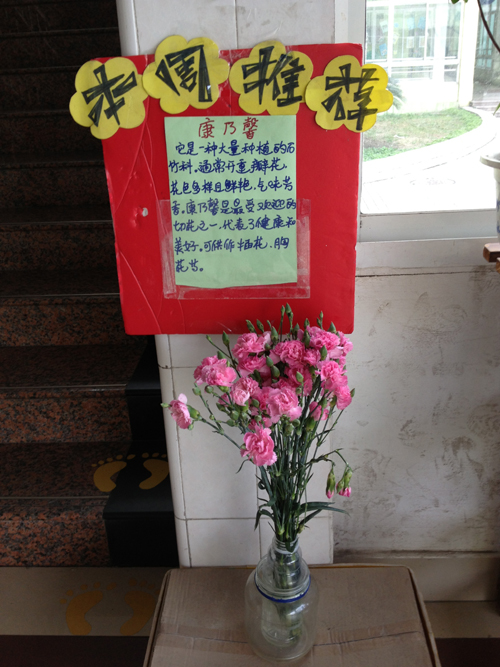 本周推荐
康乃馨
它是一种大量种植的石
竹科,通常开重瓣花,
花色多样且鲜艳,气味芳
香,康乃馨是最受欢迎的
切花之一,代表了健康和
美好。可供作插花、胸
花等。